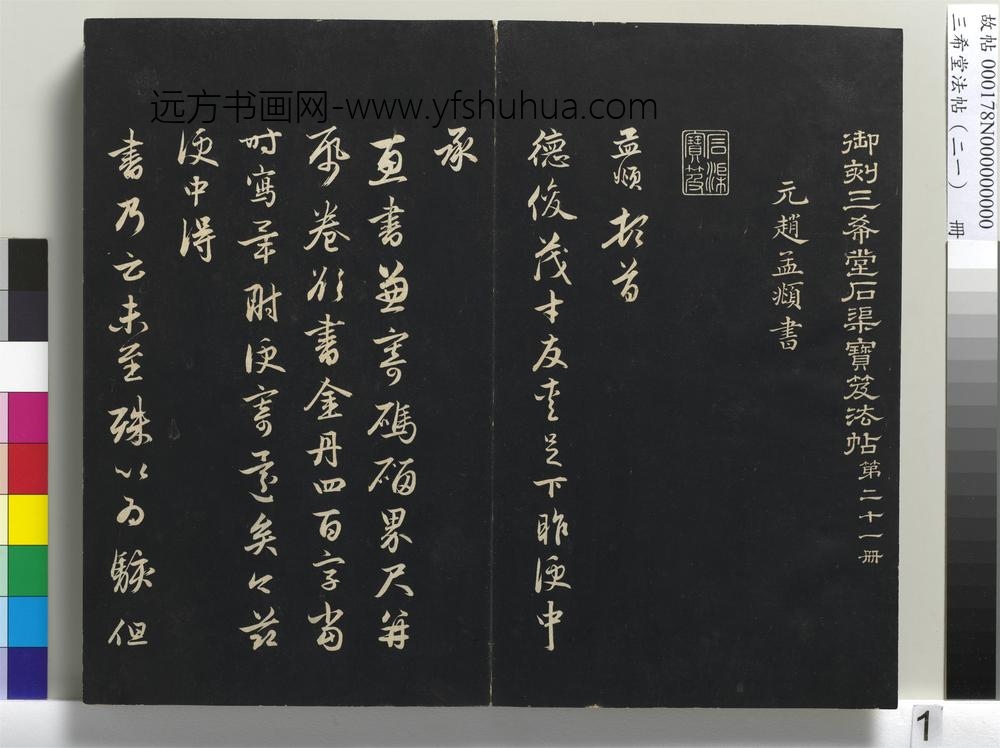 御刻三希堂石渠寶笈法帖第二十一冊
元趙孟頫書
石渠寶笈
孟頫頓首
德俊茂才友愛足下昨便中
承
惠書兼寄碼碯界尺并
紙卷欲書金丹四百字當
時寫畢附便寄還矣今茲
便中得
書乃云未至殊以為駭但
远方书画网-www.yfshuhua.com
故帖 000178N000000000
三希堂法帖（二一） 冊
1